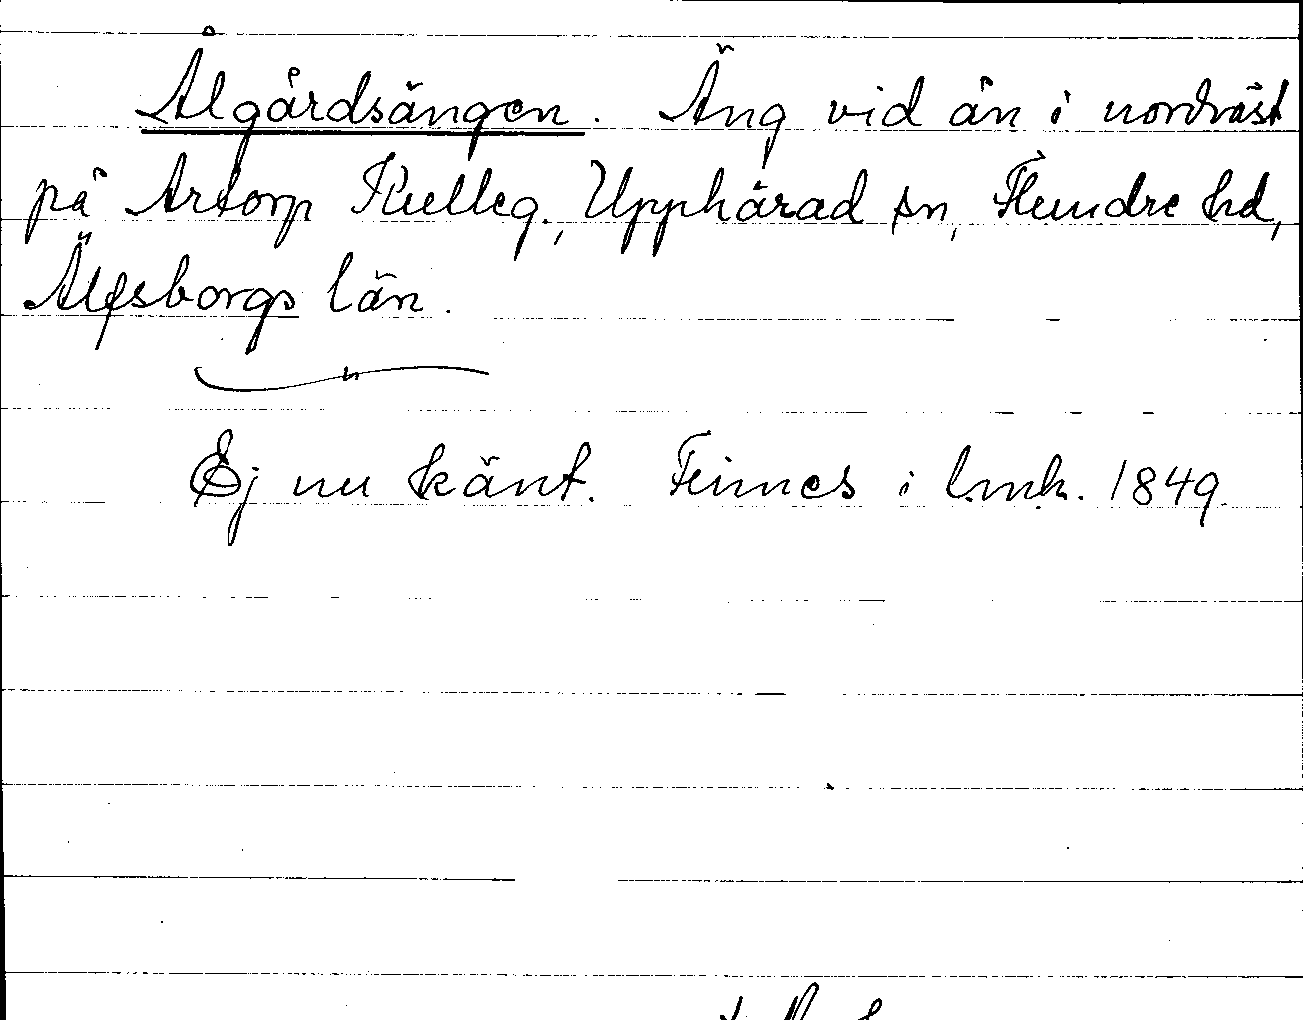 Ålgårdsängen. Äng vid ån i nordväst
på Artorp Kulleg., Upphärad sn, Flundre hd,
Älfsborgs län.
Ej nu känt. Finnes i l.mk. 1849